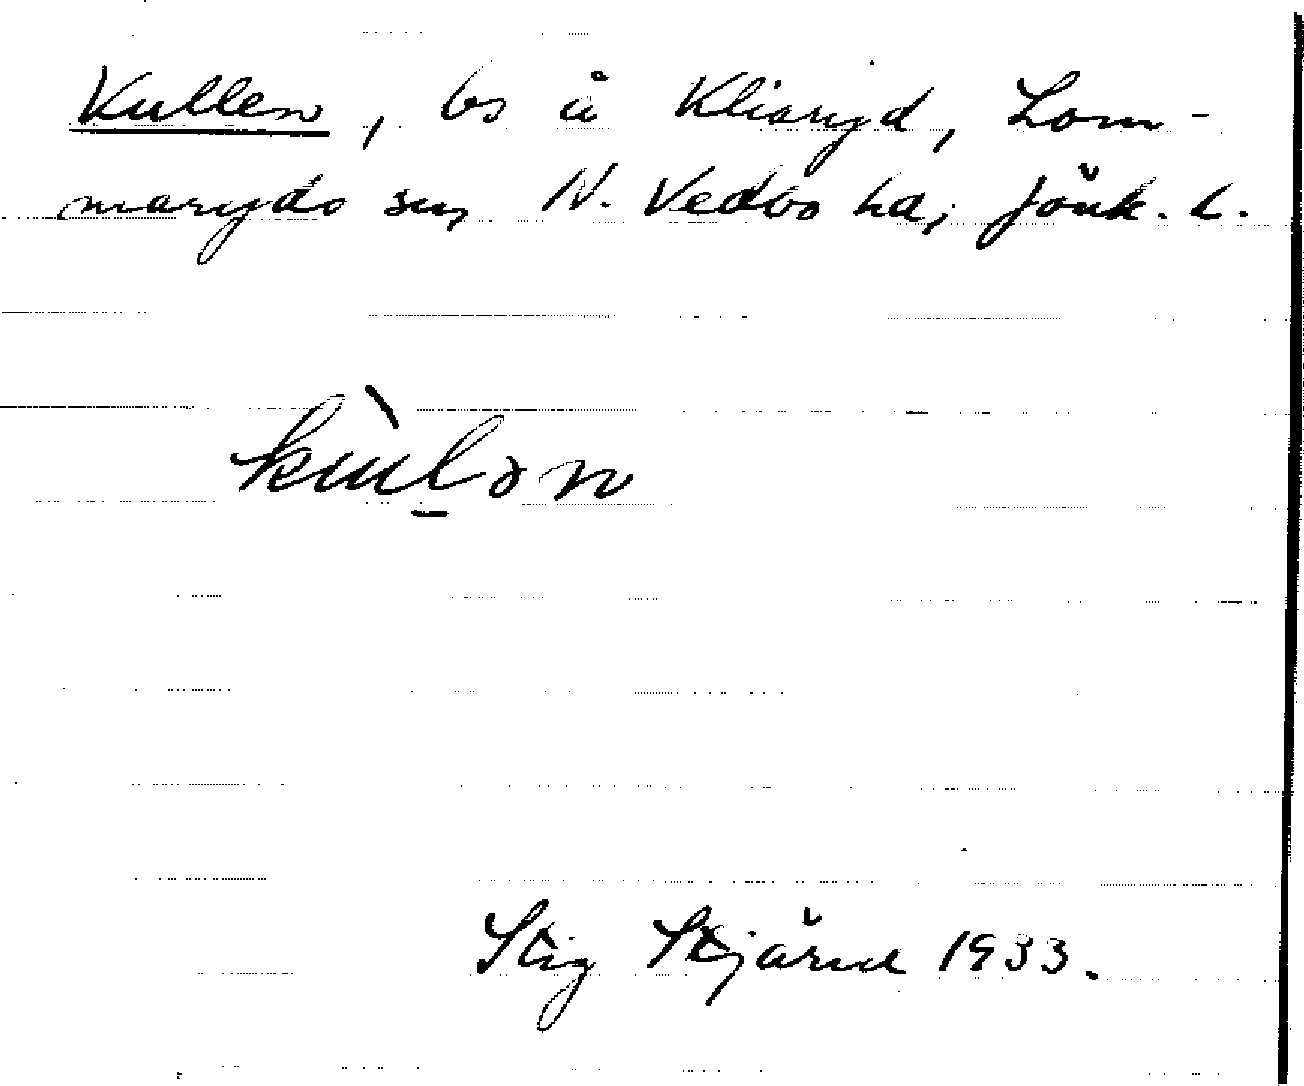 Kullen, bs å Kliaryd, Lom-
maryds sn, N. Vedbo hd, Jönk. l.
kùlən
Stig 1933.